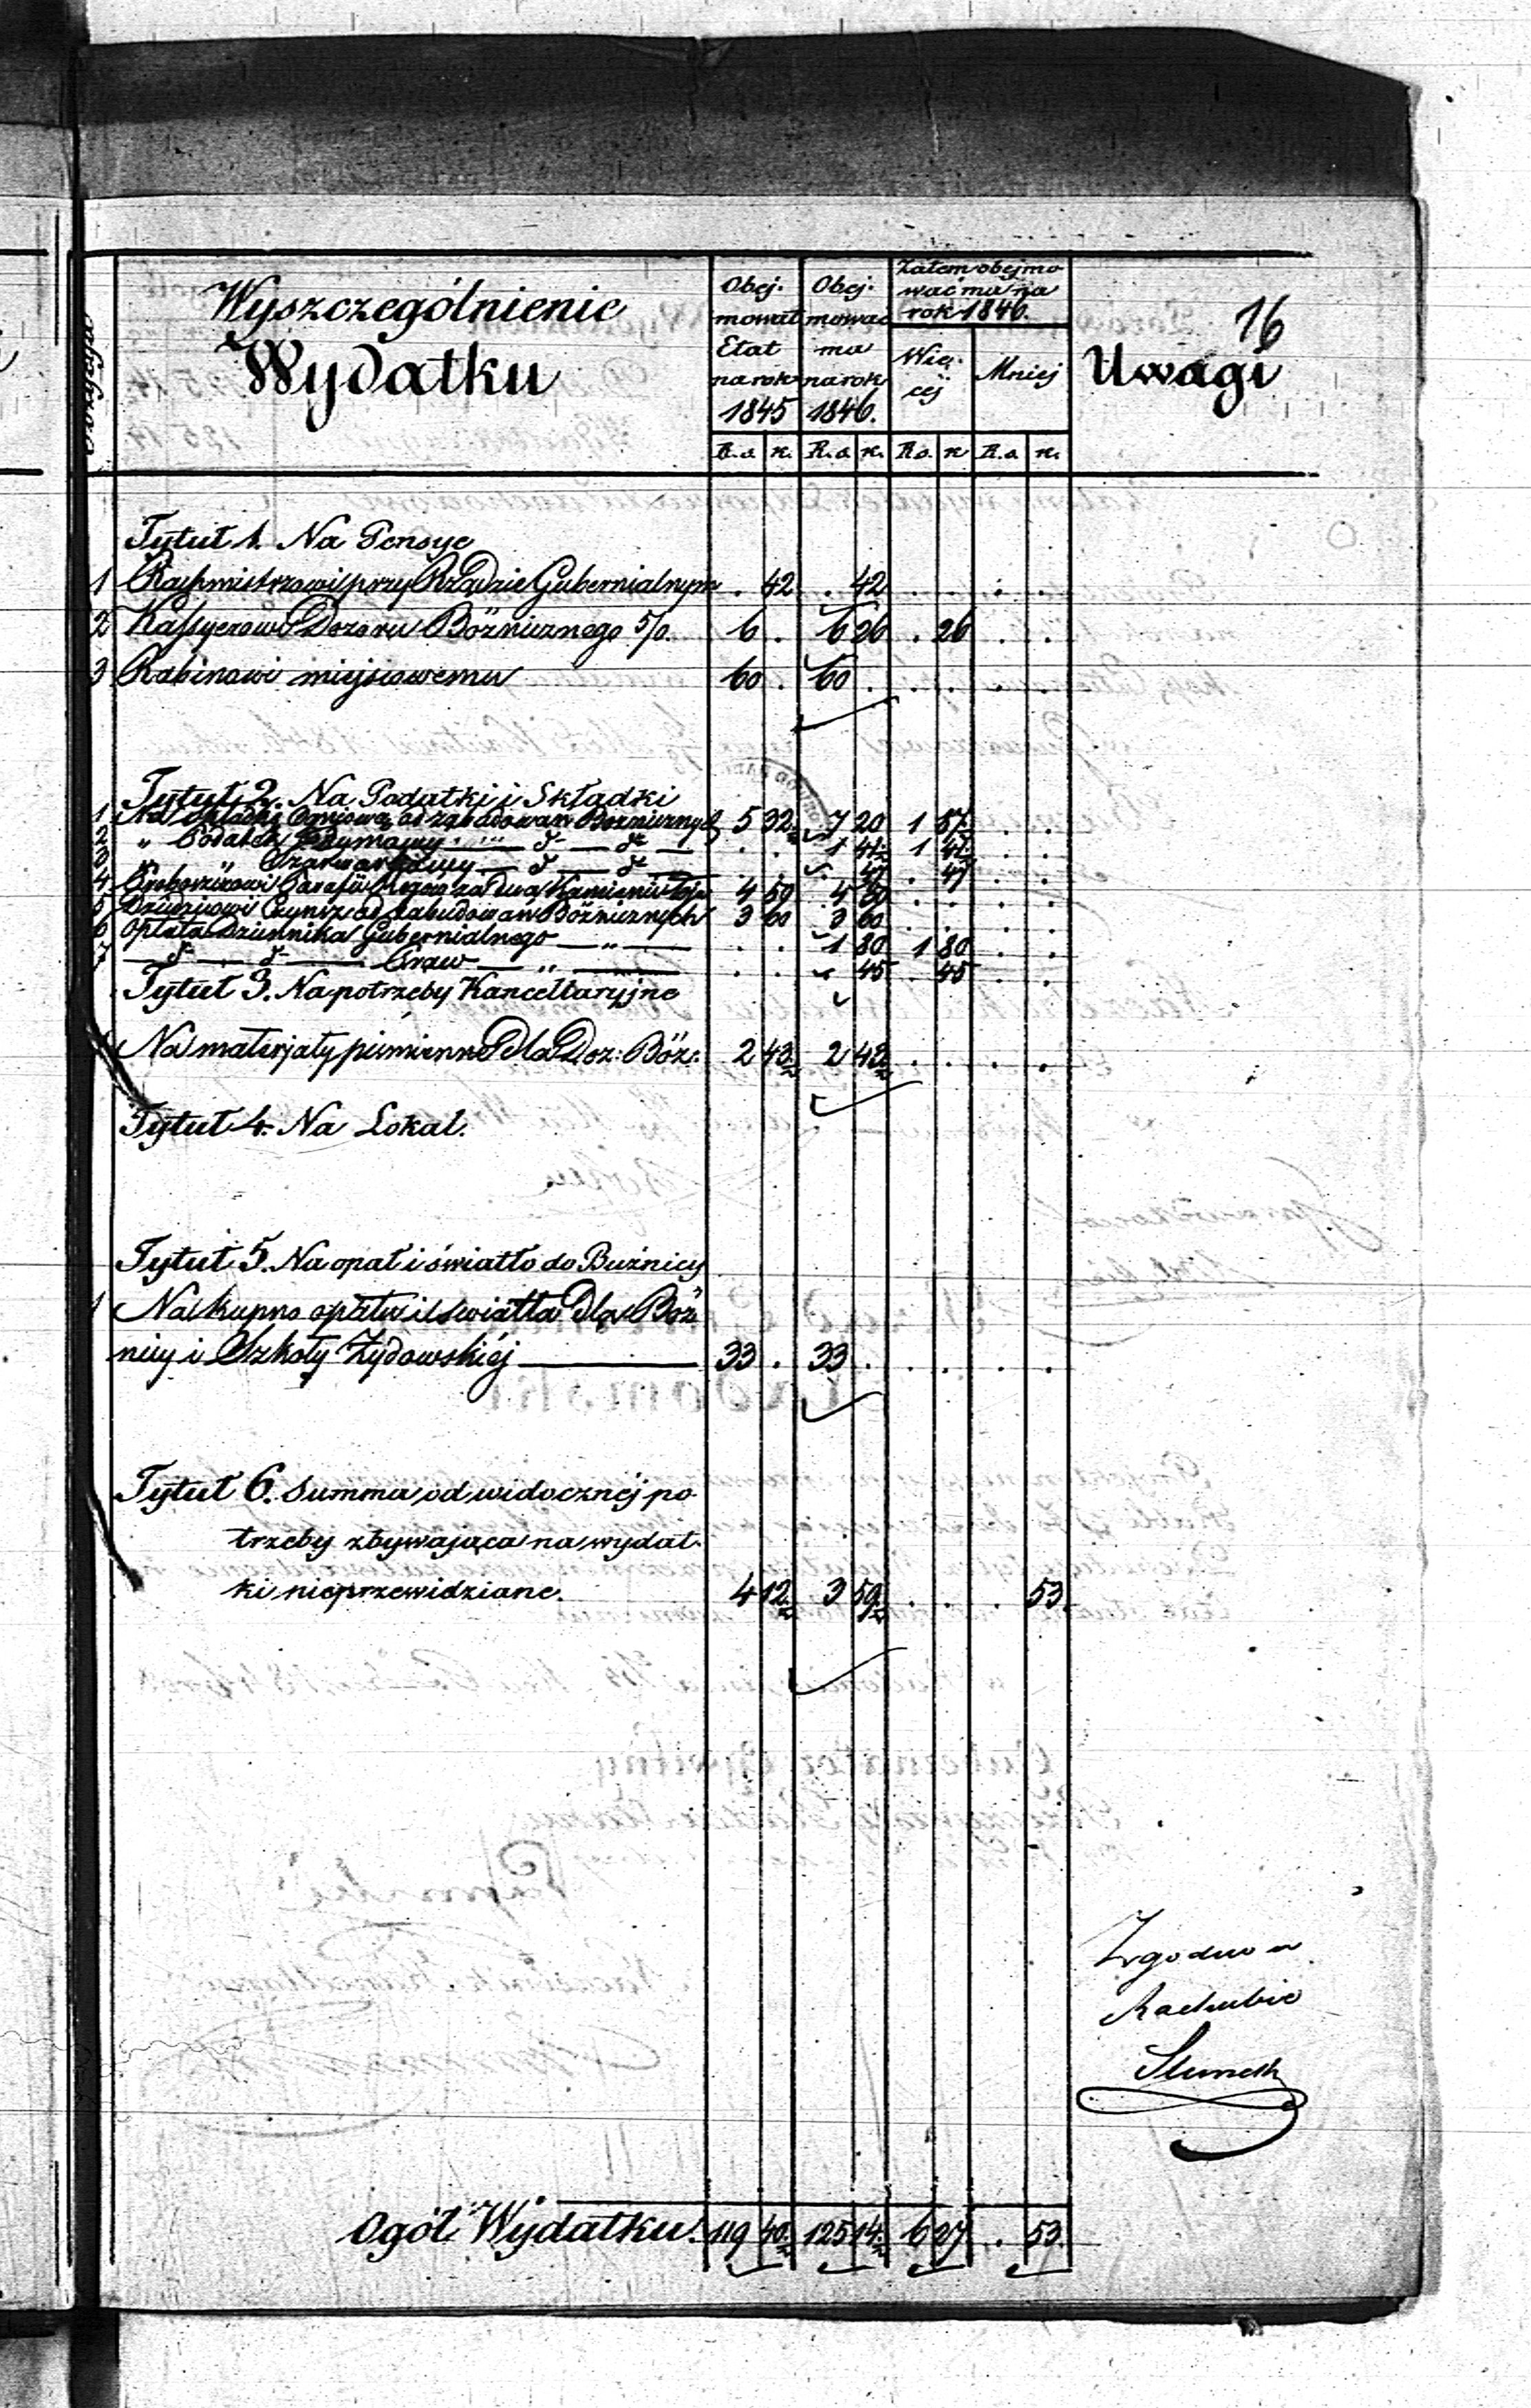 16
Wyszczególnienie
Wydatku
Obej. mował Etat na rok 1845
Obej. mować ma na rok 1846.
Zatem obejmo wać ma na rok 1846.
Wię. céj
Mniej
Uwagi
R.s. k. R.s. k. R.s. k. R.s. k.
Tytuł 1. Na Pensye
1 Rachmistrzowi przy Rządzie Gubernialnym . 42 . 42 . . . .
2 Kassyerowi Dozoru Bóżnicznego 5/0 6 . 6 26 . 26 . .
3 Rabinowi miejscowemu 60 . 60 . . . . .
Tytuł 2. Na Podatki i Składki
1 Na składkę Ogniową od zabudowań Bóżnicznych 5 32 7 20 1 87 . .
2 " Podatek Podymowy . . 1 41 1 41 . .
3 " " Szarwarkowy . . . 47 . 47 . .
4 Proboszczowi Parafii za dwa Kamienie Łoju 4 50 4 50 . . . .
5 Dziedzicowi Czynsz od Zabudowań Bóżnicznych 3 60 3 60 . . . .
6 Opłata Dziennika Gubernialnego — " — . . 1 80 1 80 . .
7 Praw — " — . . . 45 . 45 . .
Tytuł 3. Na potrzeby Kancellaryjne
Na materjały piśmienne dla Doz: Bóż: 2 43 2 43 . . . .
Tytuł 4. Na Lokal.
Tytuł 5. Na opał i światło do Buźnicy
1 Na kupno opału i światła dla Bóż
nicy i Szkoły Żydowskiéj 33 . 33 . . . . .
Tytuł 6. Summa od widocznéj po
trzeby zbywająca na wydat.
ki nieprzewidziane. 4 12 3 59 . . . 53.
Zgodno w
Rachubie
Ogół Wydatku. 119 40 125 14 6 27 . 53